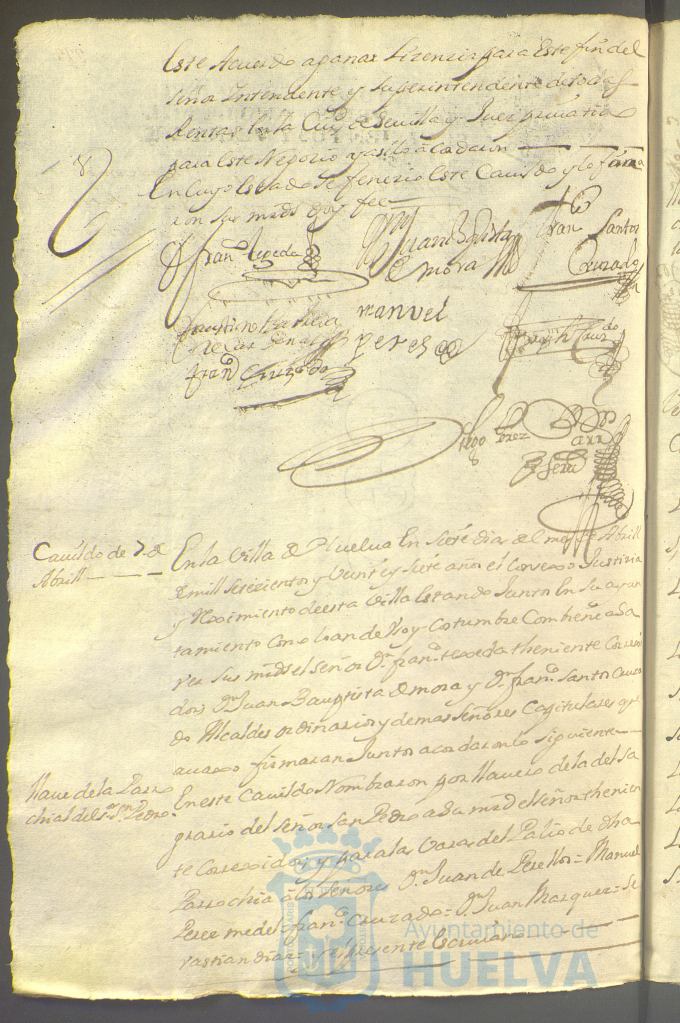 Este Acuerdo a ganar Lizenzia para Este fin del
señor Intendente y Superintendente de todas
Rentas de la Ciud de Sevilla y Juez privatibo
para Este Negocio y assi lo acordaron
En cuyo Estado se fenezio Este Cavildo y lo firma
ron sus mrds doy fee
Juan Baptista
Fran Santos
Fran.co texeda
de mora
Cruzado
manuel
perez
Fran.co Cruzado
Diego Perez
Cavildo de 7 de
Abrill
En la Villa de Huelva En siete dias del mes de Abrill
de mill setezientos y Veinte y siete años el Conzexo Justizia
y Reximiento de esta Villa Estando Junto En su ayun
tamiento Como lo an de Uso y Costumbre Combiene a sa
ver sus mrds el señor Dn fran.co texeda theniente Correxi
dor Dn Juan Bauptista de mora y Dn fran.co Santos Cruza
do Alcaldes ordinarios y demas señores Capitulares que
avaxo firmaran Juntos acordaron lo siguiente
llave de la Parro
chial del sr Sn Pedro
En este Cavildo Nombraron por llavero de la del Sa
grario del señor San Pedro a su mrd el señor thenien
te Correxidor y para las Varas del Palio de dha
Parrochia a los señores Dn Juan de = Manuel
Perez fran.co Cruzado = Dn Juan Marquez = Se
vastian diaz = el presente Escrivano
Ayuntamiento de
HUELVA